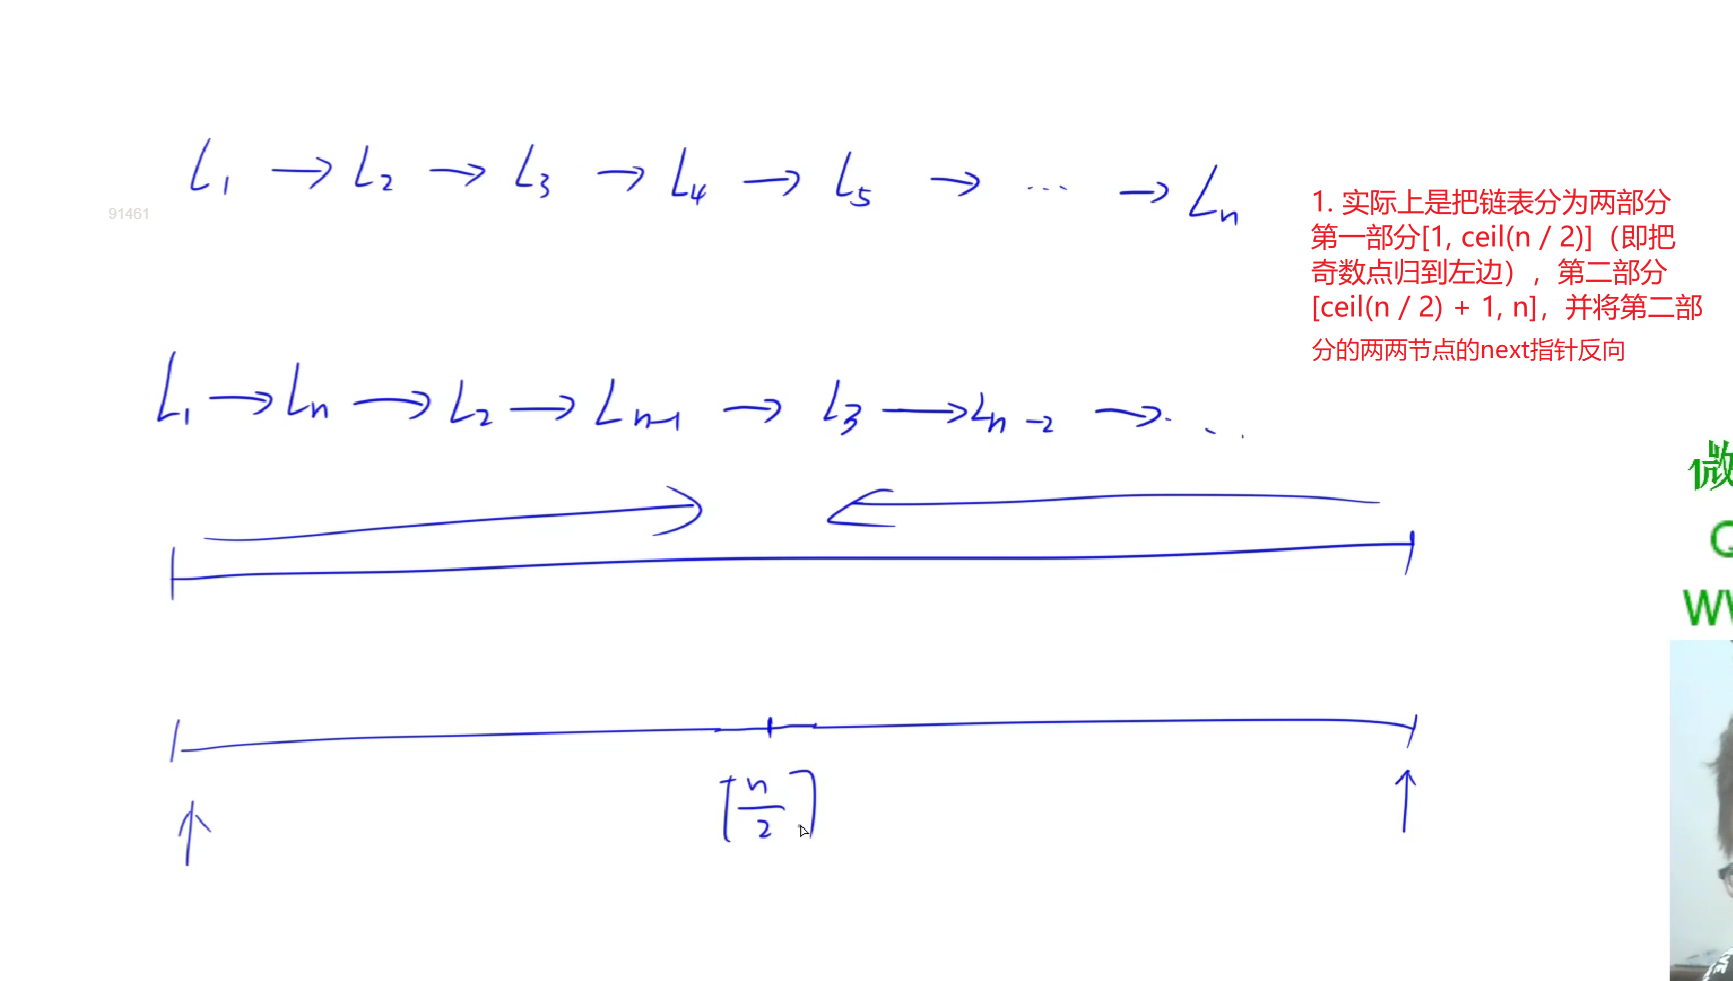 L1 → L2 → L3 → L4 → L5 → ... → Ln
91461
1. 实际上是把链表分为两部分
第一部分[1, ceil(n / 2)]（即把
奇数点归到左边），第二部分
[ceil(n / 2) + 1, n]，并将第二部
分的两两节点的next指针反向
L1 → Ln → L2 → Ln-1 → L3 → Ln-2 → ...
微
Q
W
⌈n/2⌉